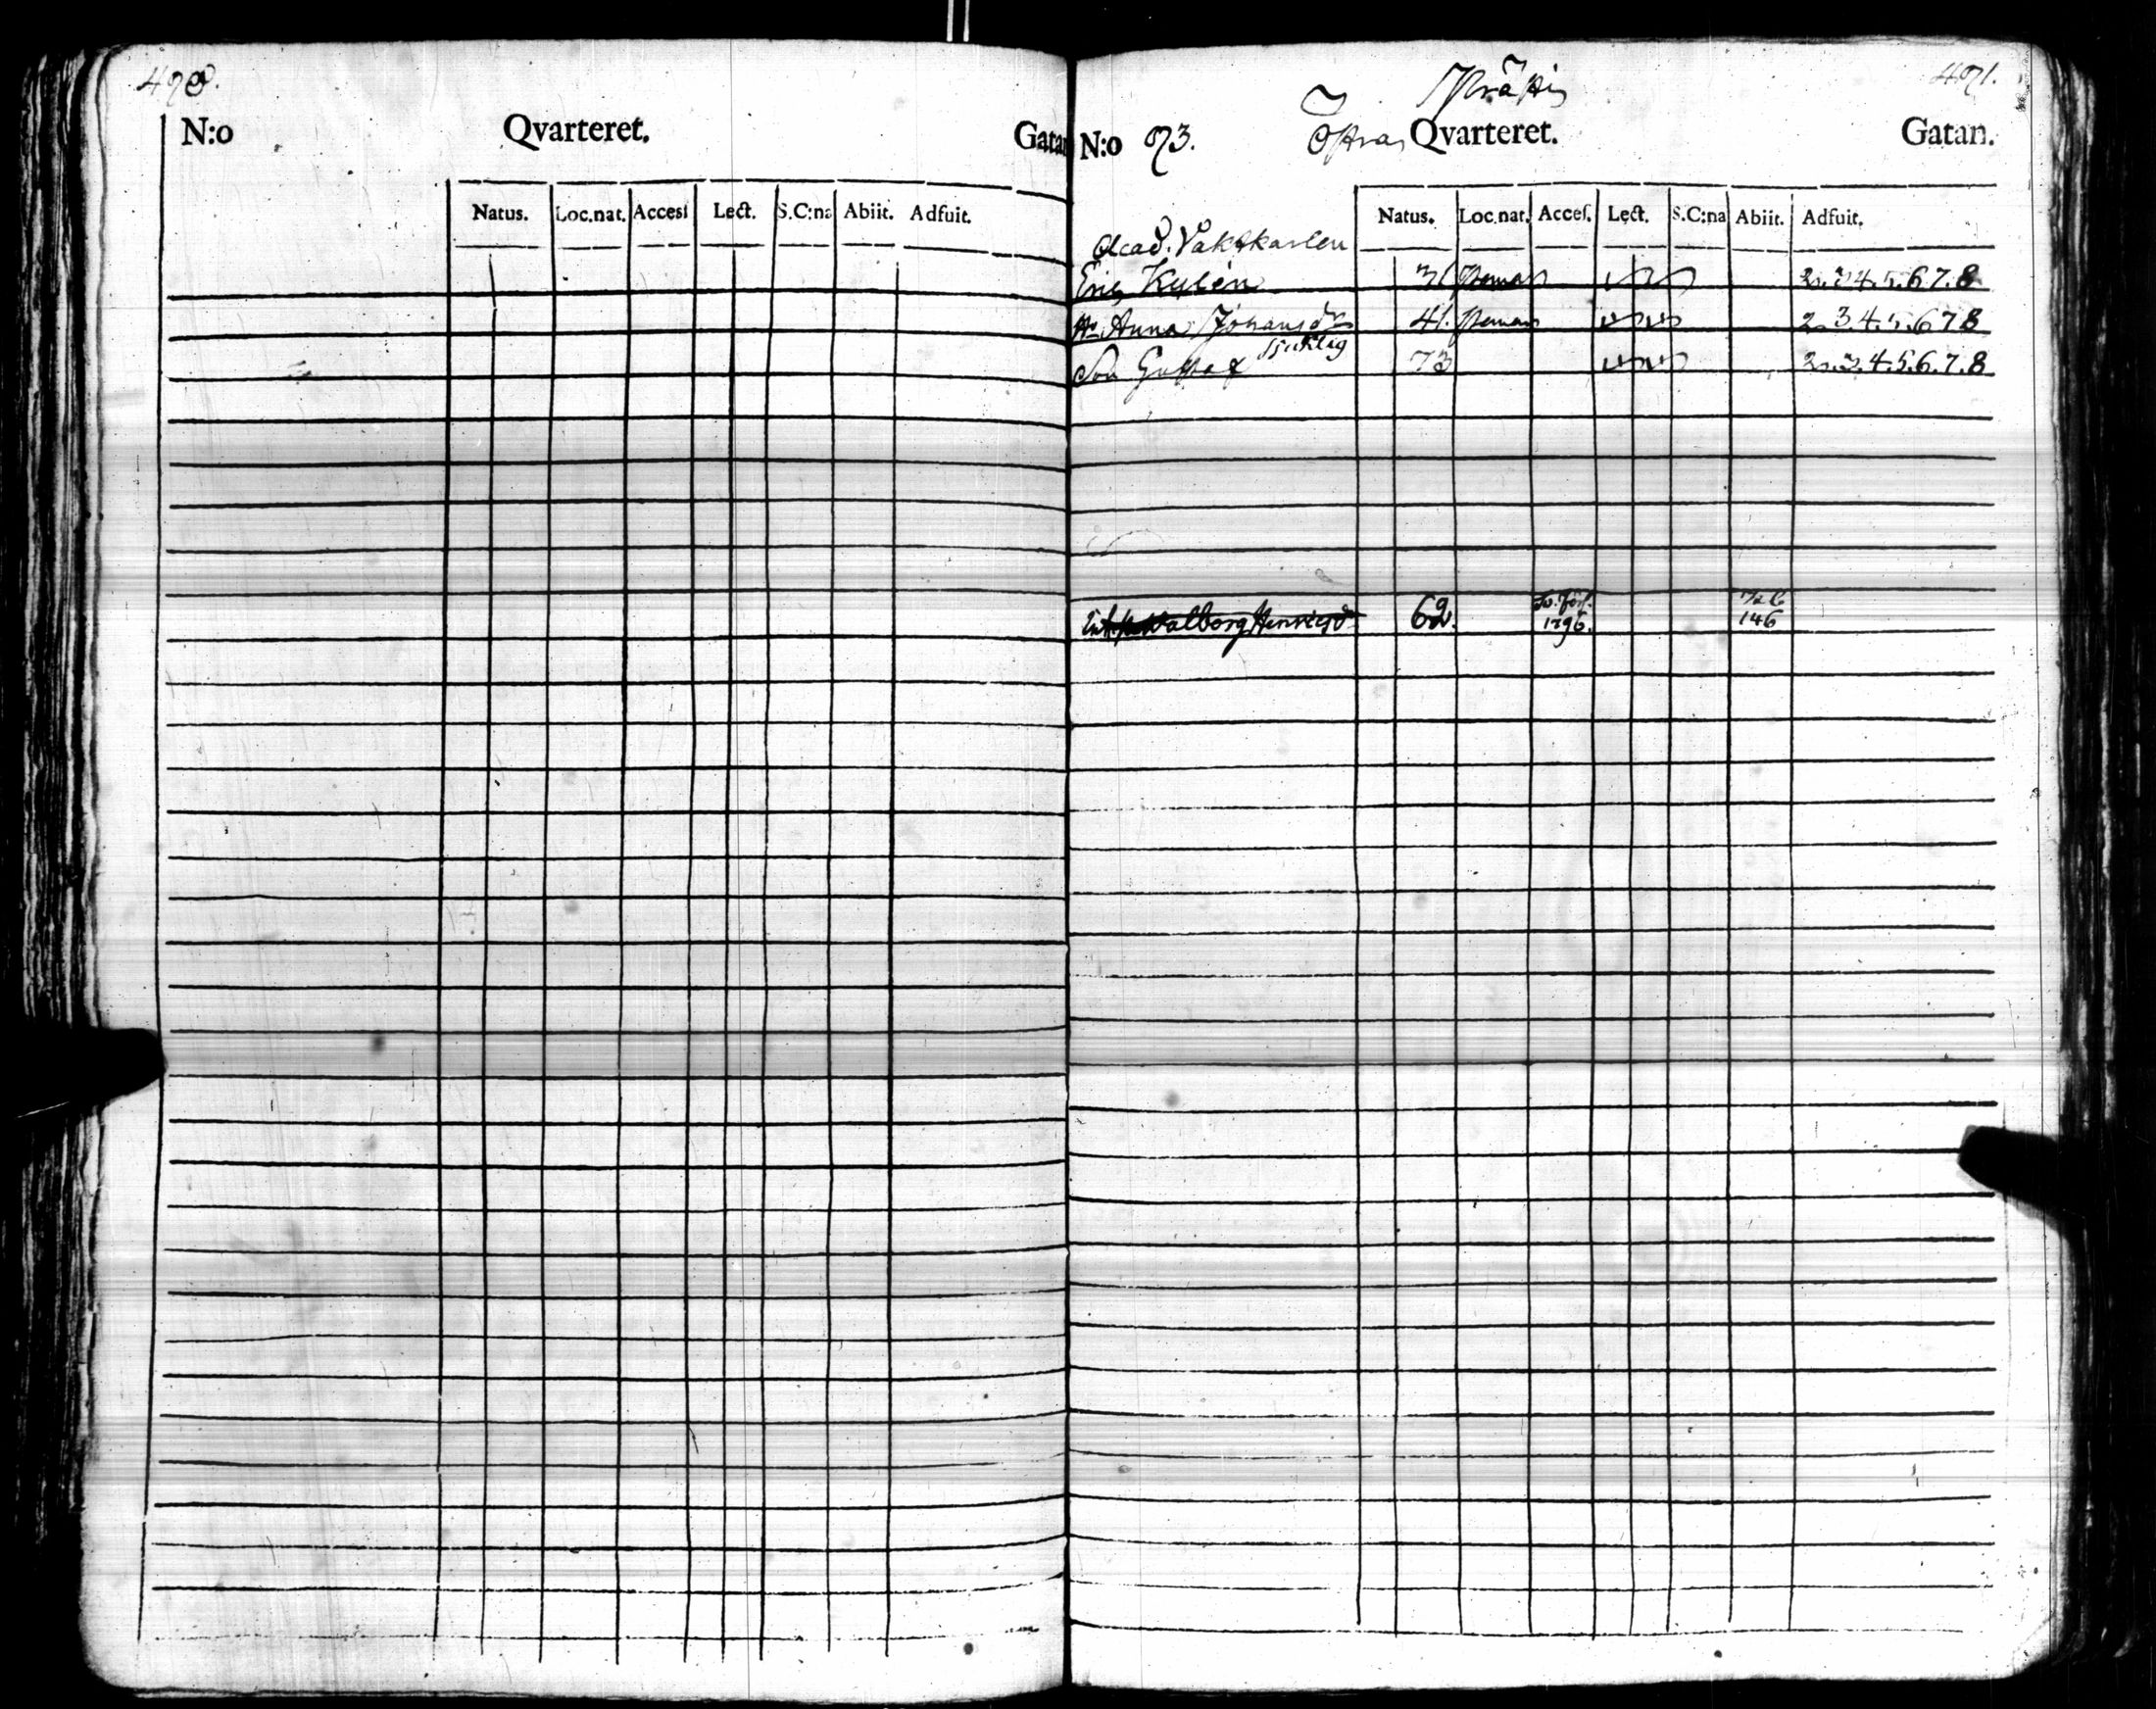 470.
N:o Qvarteret. Gatan
Natus. Loc.nat. Accesf Lect. S.C:na Abiit. Adfuit.
471.
N:o 73. Östra Qvarteret. Gatan.
Natus. Loc.nat. Accef. Lect. S.C:na Abiit. Adfuit.
Acad. Vaktkarlen
Eric Kylén 31 2.3.4.5.6.7.8
H. Anna Johansdr 41. 2.3.4.5.6.7.8
sjuklig
Son Gustaf 73 2.3.4.5.6.7.8
Walborg Henricsd 62. 1796. 146